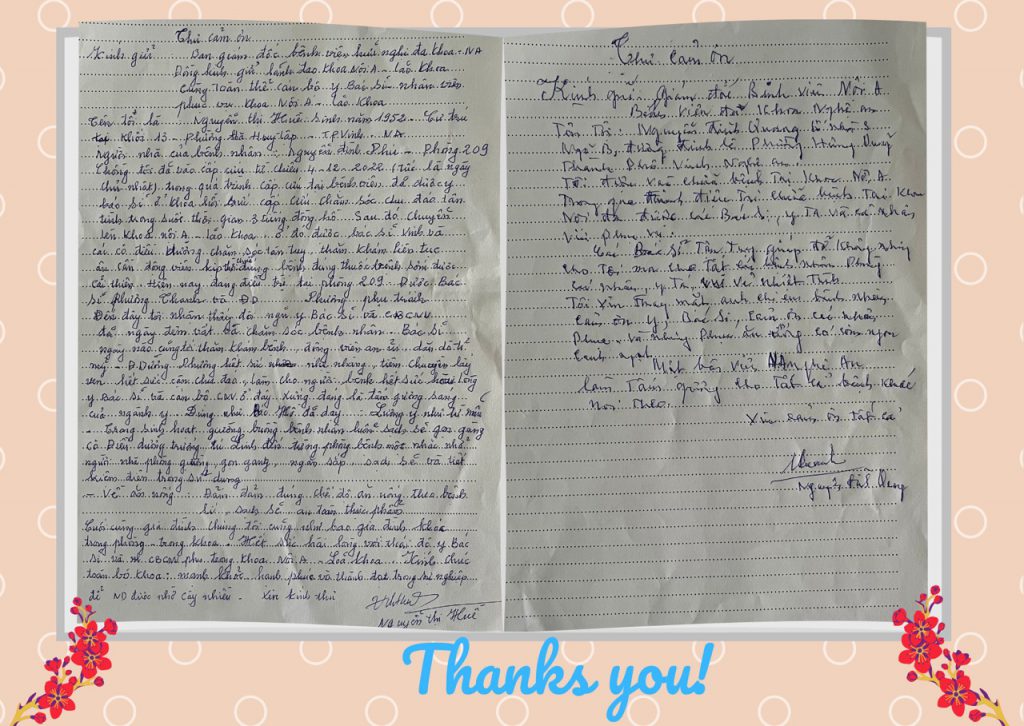 Thư cảm ơn
Kính gửi Ban giám đốc bệnh viện hữu nghị đa khoa - NA
Đồng kính gửi lãnh đạo khoa Nội A - Lão khoa
Cùng toàn thể cán bộ y Bác sĩ nhân viên
phục vụ khoa Nội A - Lão khoa
Tên tôi là Nguyễn Thị Huê Sinh năm 1952 - Cư trú
tại khối 13 - Phường Hà Huy Tập - T.P Vinh - NA
Người nhà của bệnh nhân: Nguyễn Đình Phú - Phòng 209
Chúng tôi đã vào cấp cứu từ chiều 4-12-2022 (Tức là ngày
chủ nhật) trong quá trình cấp cứu tại bệnh viện đã được y
bác sĩ ở khoa hồi sức cấp cứu chăm sóc chu đáo tận
tình trong suốt thời gian 3 tiếng đồng hồ. Sau đó chuyển
lên khoa nội A - Lão khoa. ở đó được bác sĩ Vinh và
các cô điều dưỡng chăm sóc tận tụy, thăm khám liên tục
ân cần động viên kịp thời đúng bệnh đúng thuốc bệnh sớm được
cải thiện. Hiện nay đang điều trị tại phòng 209. Được Bác
sĩ Phương Thanh và ĐD Phương phụ trách
Đến đây tôi nhận thấy đội ngũ y Bác sĩ và CBCNV
đã ngày đêm vất vả chăm sóc bệnh nhân. Bác sĩ
ngày nào cũng tới thăm khám bệnh, động viên an ủi, dặn dò tỉ
mỹ - Đ Dưỡng Phương hết sức nhẹ nhàng, tiêm chuyền lấy
ven hết sức cẩn chu đáo, làm cho người bệnh hết sức hài lòng
y Bác sĩ và cán bộ CNV ở đây xứng đáng là tấm gương sáng
của ngành y Đúng như Bác Hồ đã dạy: Lương y như từ mẫu
- Trong sinh hoạt giường buồng bệnh nhân luôn sạch sẽ gọn gàng
cô Điều dưỡng trưởng Tú Linh đến từng phòng bệnh một nhắc nhở
người nhà phòng giường gọn gàng, ngăn nắp sạch sẽ và tiết
kiệm điện trong sử dụng
- Về ăn uống: Đảm đảm đúng chế độ ăn uống theo bệnh
lí, sạch sẽ an toàn thực phẩm
Cuối cùng gia đình chúng tôi cũng như bao gia đình khác
trong phòng - trong khoa - Hết sức hài lòng với đội y Bác
sĩ và CBCNV phục vụ trong khoa Nội A - Lão khoa. Kính chúc
toàn bộ khoa: mạnh khỏe hạnh phúc và thành đạt trong sự nghiệp
để ND được nhờ cậy nhiều - Xin kính thư
Nguyễn Thị Huê
Thư Cảm Ơn
Kính gửi Giám đốc Bệnh viện Nội A
Bệnh viện đa khoa Nghệ An
Tên Tôi: Nguyễn Đình Quang
Ngõ B, đường Đinh Lễ Phường Hưng Dũng
Thành Phố Vinh Nghệ An
Tôi điều trị chữa bệnh Tại Khoa Nội A
Trong quá trình điều trị chữa bệnh Tại Khoa
Nội đã được các Bác Sĩ, y Tá và cá nhân
viên phục vụ
Các Bác Sĩ Tận Tụy giúp đỡ không những
cho Tôi mà cho Tất cả bệnh nhân phòng
Tôi xin Thay mặt anh chị em bệnh nhân
Cảm ơn y, Bác Sĩ, Cảm ơn các nhân
cơm ngon
canh ngọt
Một bệnh viện Nghệ An
làm Tấm gương cho Tất cả bệnh khác
noi theo.
Xin cảm ơn tất cả
Nguyễn Đình Quang
Thanks you!